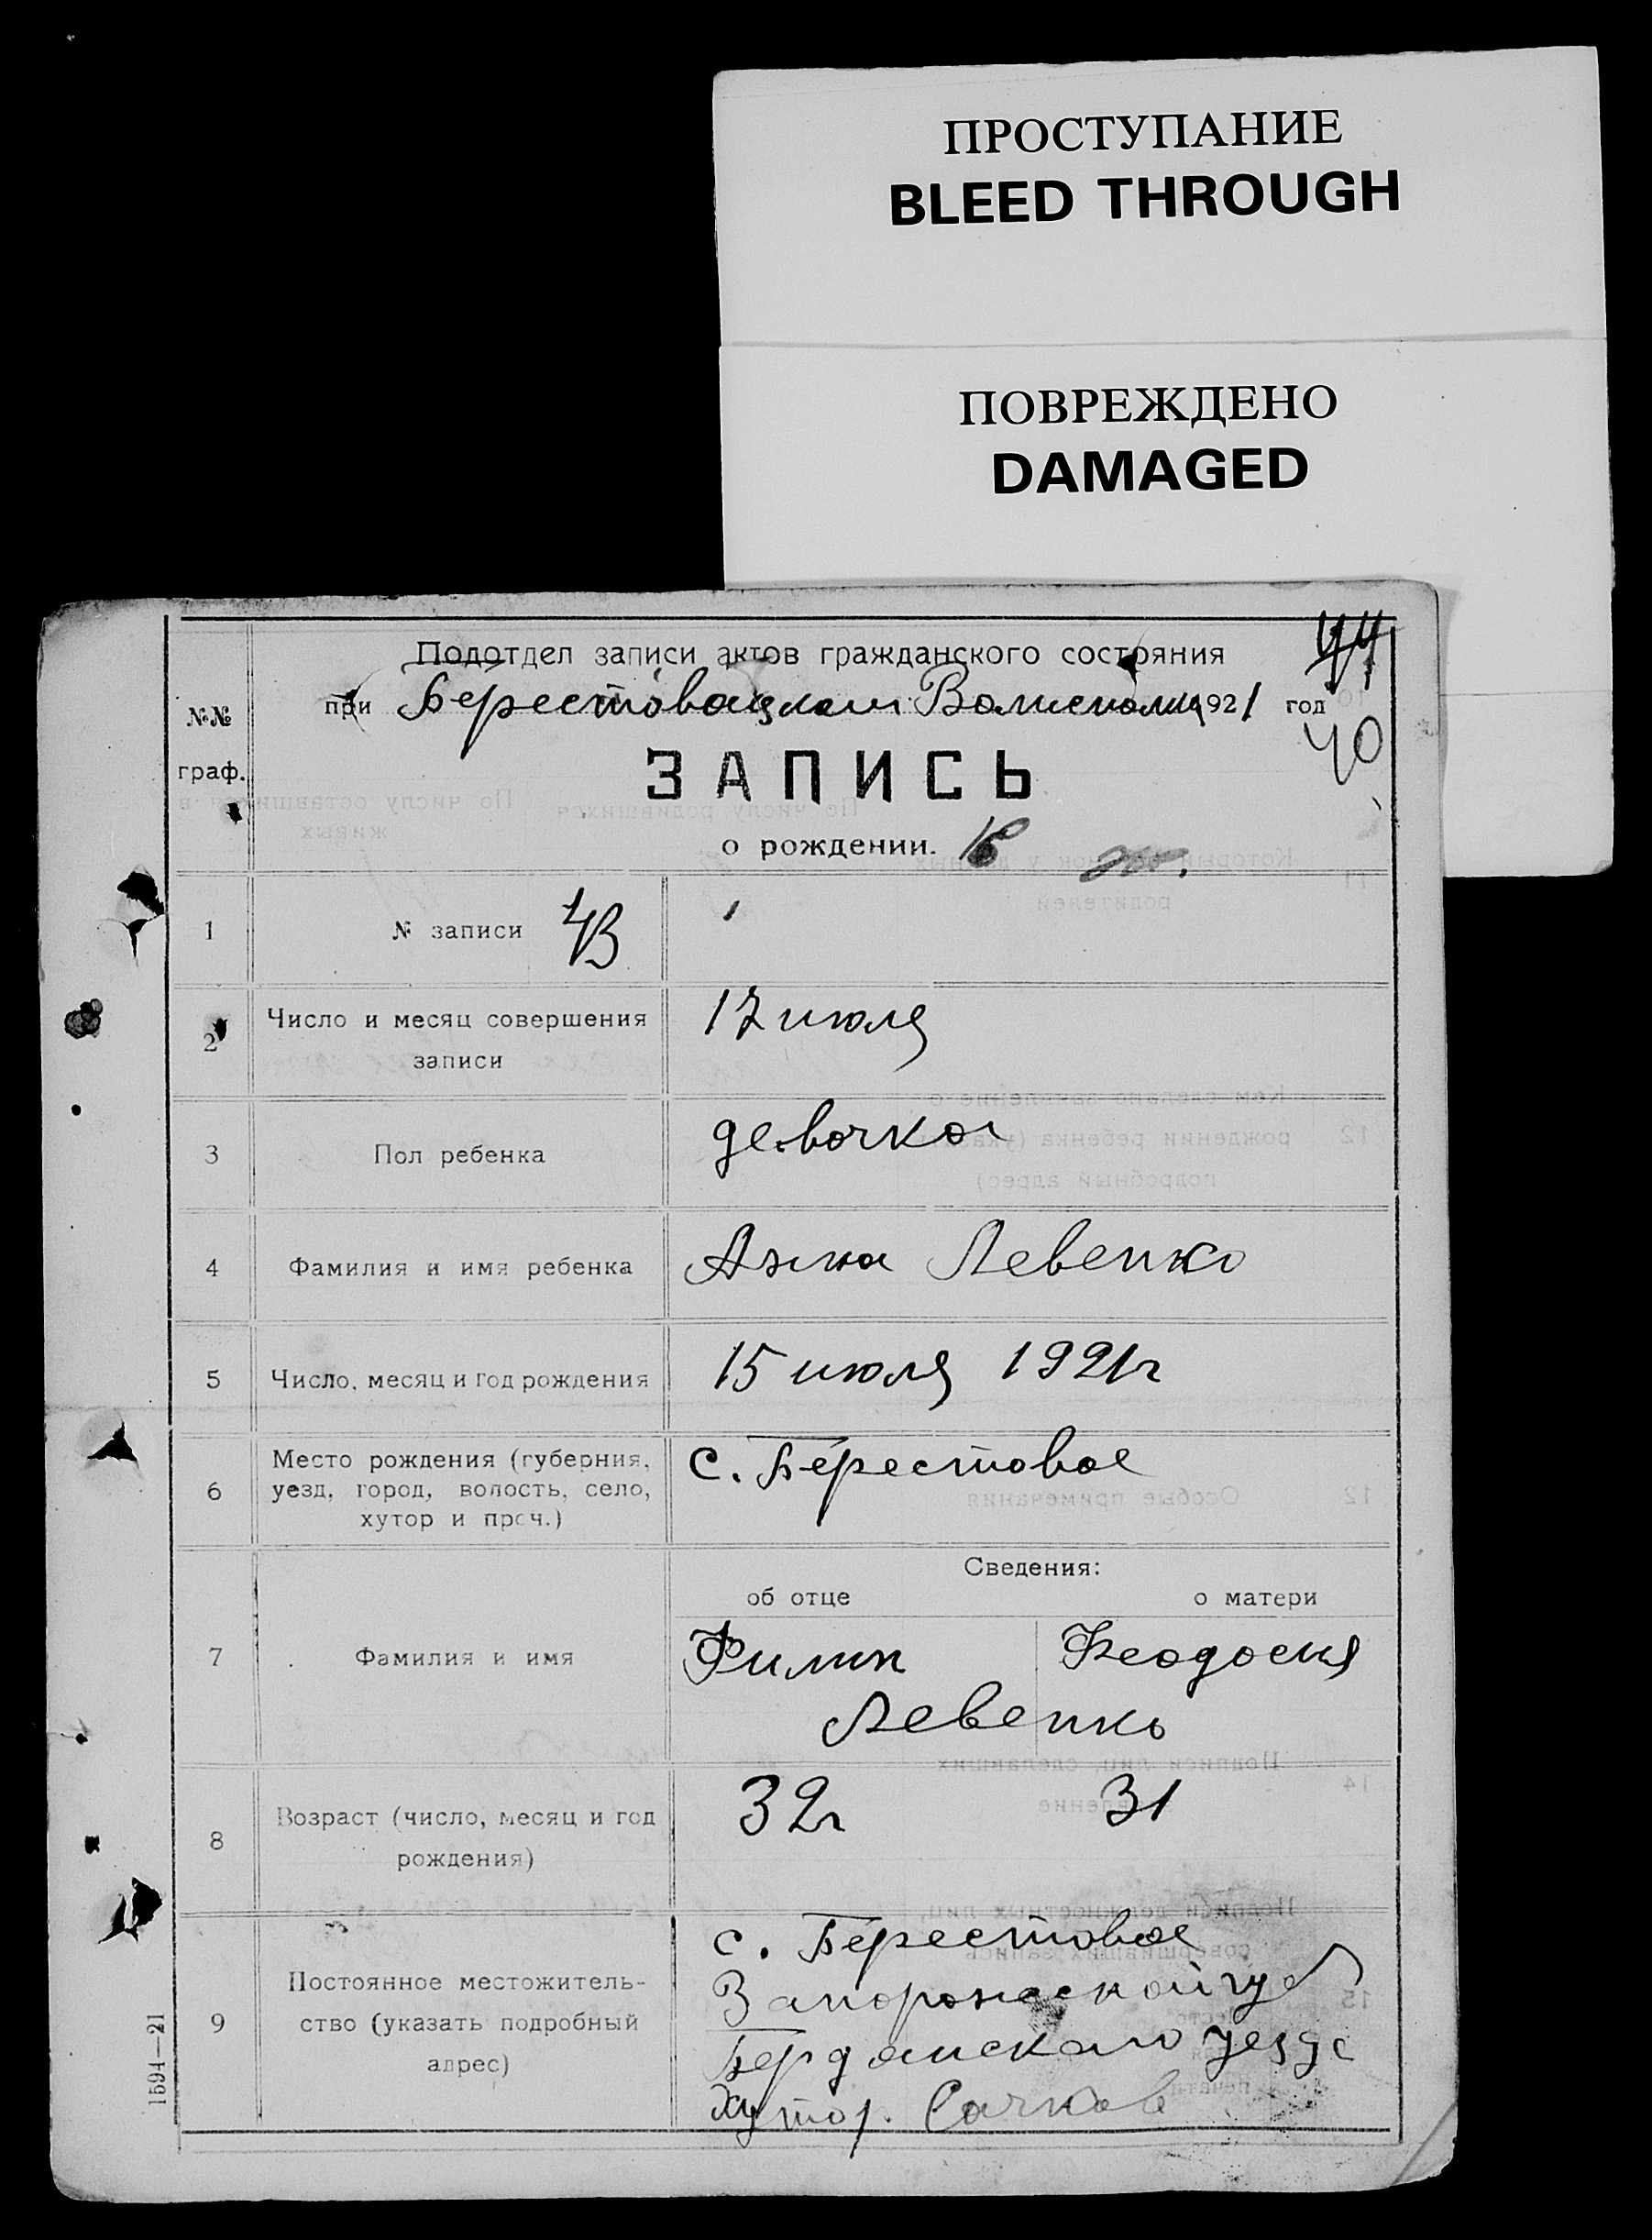 ПРОСТУПАНИЕ
BLEED THROUGH
ПОВРЕЖДЕНО
DAMAGED
Подотдел записи актов гражданского состояния
при Берестовацком Волисполк 1921 год
40
№№
граф.
ЗАПИСЬ
о рождении.
1 № записи
2 Число и месяц совершения
записи
17 июля
3 Пол ребенка девочка
4 Фамилия и имя ребенка Анна Левенко
5 Число, месяц и год рождения 15 июля 1921 г
6 Место рождения (губерния,
уезд, город, волость, село,
хутор и проч.)
с. Берестовое
Сведения:
об отце о матери
7 Фамилия и имя Филип Феодосия
Левенко
8 Возраст (число, месяц и год
рождения)
32 г 31
9 Постоянное местожитель-
ство (указать подробный
адрес)
с. Берестовое
Запорожской губ
Бердянскаго уезда
Хутор.
1594—21